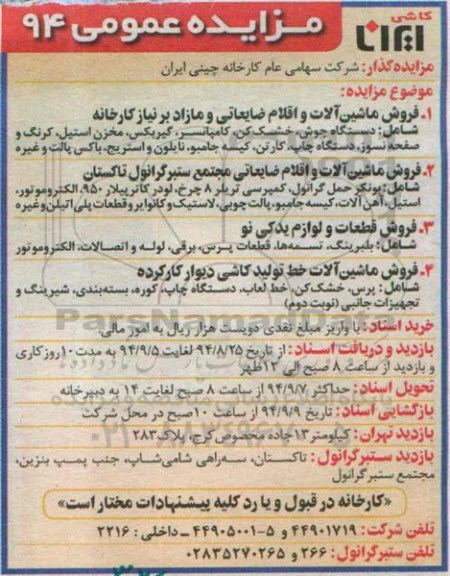 کاشی ایرانا
مزایده عمومی ۹۴
مزایده‌گذار: شرکت سهامی عام کارخانه چینی ایران
موضوع مزایده:
۱ـ فروش ماشین‌آلات و اقلام ضایعاتی و مازاد بر نیاز کارخانه
شامل: دستگاه جوش، خشک‌کن، کامپانسر، گیربکس، مخزن استیل، کرنگ و
صفحه نسوز، دستگاه چاپ، کارتن، کیسه جامبو، نایلون و استریج، باکس پالت و غیره
۲ـ فروش ماشین‌آلات و اقلام ضایعاتی مجتمع ستبرگرانول تاکستان
شامل: بونکر حمل گرانول، کمپرسی تریلر ۸ چرخ، لودر کاترپیلار ۹۵۰، الکتروموتور،
استیل، آهن آلات، کیسه جامبو، پالت چوبی، لاستیک و کانوایر و قطعات پلی اتیلن و غیره
۳ـ فروش قطعات و لوازم یدکی نو
شامل: بلبرینگ، تسمه‌ها، قطعات پرس، برقی، لوله و اتصالات، الکتروموتور
۴ـ فروش ماشین‌آلات خط تولید کاشی دیوار کارکرده
شامل: پرس، خشک‌کن، خط لعاب، دستگاه چاپ، کوره، بسته‌بندی، شیرینگ و
تجهیزات جانبی (نوبت دوم)
خرید اسناد: با واریز مبلغ نقدی دویست هزار ریال به امور مالی.
بازدید و دریافت اسناد: از تاریخ ۹۴/۸/۲۵ لغایت ۹۴/۹/۵ به مدت ۱۰ روز کاری
و بازدید از ساعت ۸ صبح الی ۱۲ ظهر
تحویل اسناد: حداکثر ۹۴/۹/۷ از ساعت ۸ صبح لغایت ۱۴ به دبیرخانه
بازگشایی اسناد: تاریخ ۹۴/۹/۹ از ساعت ۱۰ صبح در محل شرکت
بازدید تهران: کیلومتر ۱۳ جاده مخصوص کرج، پلاک ۲۸۳
بازدید ستبرگرانول: تاکستان، سه‌راهی شامی‌شاپ، جنب پمپ بنزین،
مجتمع ستبر گرانول
«کارخانه در قبول و یا رد کلیه پیشنهادات مختار است»
تلفن شرکت: ۴۴۹۰۱۷۱۹ و ۵-۴۴۹۰۵۰۰۱ ـ داخلی: ۲۲۱۶
تلفن ستبرگرانول: ۲۶۶ و ۰۲۸۳۵۲۷۰۲۶۵
ParsNamadData